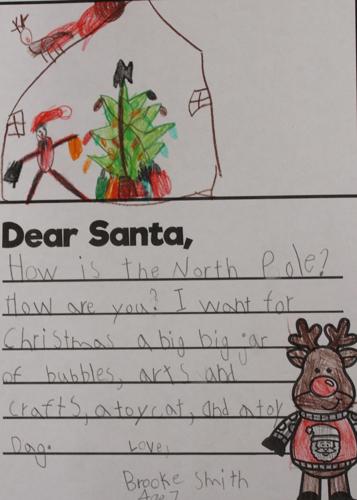 Dear Santa,
How is the North Pole?
How are you? I want for
Christmas a big big jar
of bubbles, arts and
crafts, a toy cat, and a toy
Dag.
Love,
Brooke Smith
Age 7